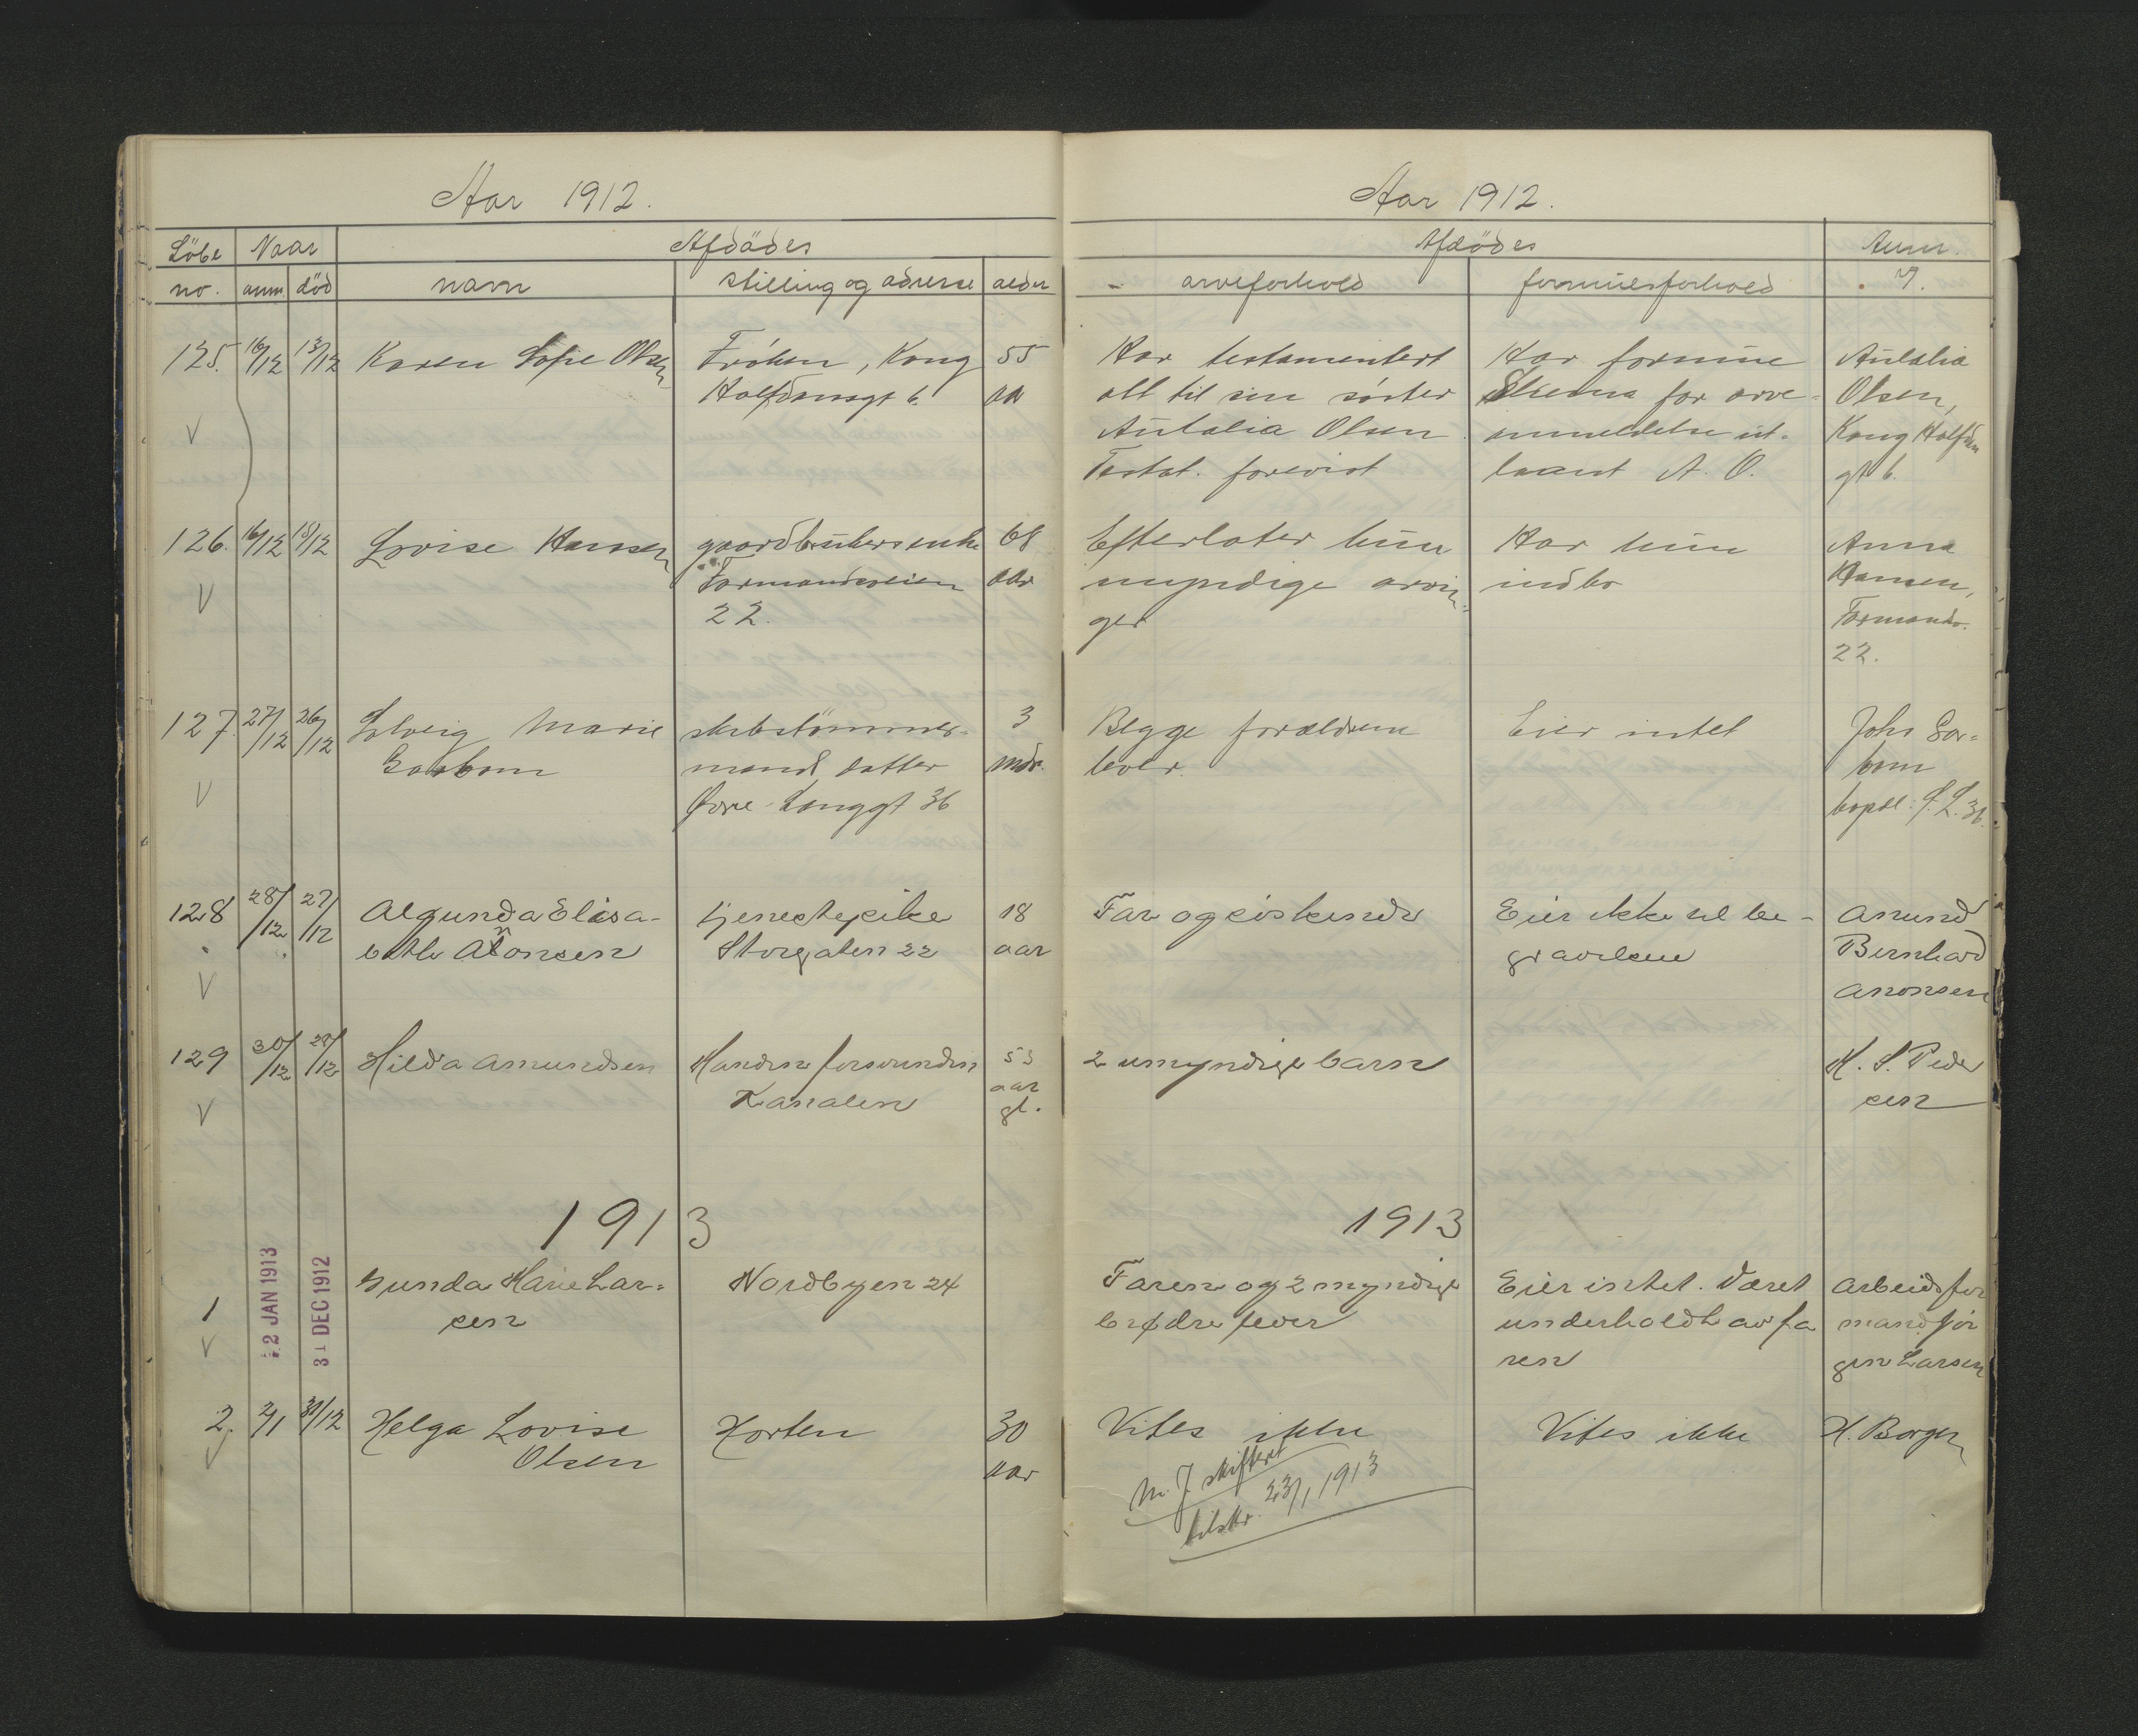 Aar 1912.
Løbe no.
Naar
anm død
Afdødes
navn
stilling og adresse
alder
125. 16/12 13/12
Karen Sofie Olsen
Frøken, Kong
Halfdansgt 6.
55
aar
126. 16/12 15/12
Lovise Hansen
gaardbrukersenke
Formandsveien
22.
68
aar
127. 27/12 26/12
Solveig Marie
skibstømmer-
mand, datter
Øvre Langgt 36
3
mdr.
128 28/12 27/12
Algunda Elisa-
beth Anonsen
tjenestepike
Storgaten 22
18
aar
129 30/12 28/12
Hilda Amundsen
Manden forsvunden
Kanalen
53
aar
gl.
1913
1
2 JAN 1913
31 DEC 1912
Gunda Marie Lar-
sen
Nordbyen 24
2. 2/1 31/12
Helga Lovise
Olsen
Horten
30
aar
Aar 1912.
Afdødes
arveforhold
formuesforhold
Anm.
Har testamentert
alt til sin søster
Aulalia Olsen
Testat. forevist
Har formue
Skema for arve-
anmeldelse ut-
laant A. O.
Aulalia
Olsen,
Kong Halfdan
gt 6.
Efterlater kun
myndige arvin-
ger
Har kun
indbo
Anna
Hansen,
Formandsv.
22.
Begge forældrene
lever.
Eier intet
John
bopæl: Ø. L. 36.
Far og søskende
Eier ikke til be-
gravelsen
Anund
Bernhard
Anonsen
2 umyndige barn
H. S. Peder
sen
1913
Faren og 2 myndige
brødre lever
Eier intet. Været
underholdt av fa
ren
Arbeidsfor
mand Jør
gen Larsen
Vites ikke
Vites ikke
H. Borgen
m. J. skifteret
tilskr. 23/1 1913